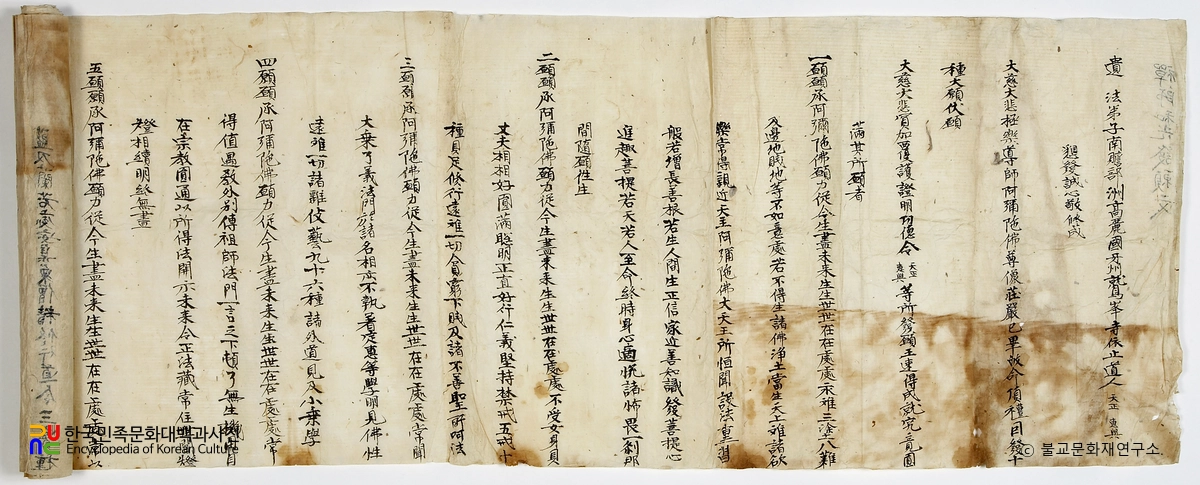 遺 法弟子南贍部洲高麗國牙州鷲峯寺依止道人 天正 惠興
懇發誠心敬修成
大慈大悲極樂導師阿彌陁佛尊像莊嚴已畢披命頂禮日發十
種大願伏願
大慈大悲哀加覆護證明功德令 天正 惠興 等所發願王速得成就究竟圓
滿其所願者
一願願承阿彌陁佛願力從今生盡未來生生世世在在處處永離三塗八難
及邊地賤地等不如意處若不得生諸佛淨土當生天上離諸欲
樂常得親近天主阿彌陁佛大天王所恒聞說法重習
般若增長善根若生人間生正信家近善知識發菩提心
進趣菩提若天若人至命終時身心適悅諸怖畏一刹那
間隨願往生
二願願承阿彌陁佛願力從今生盡未來生生世世在在處處不受女身具
丈夫相相好圓滿聡明正直好行仁義堅持禁戒五戒十
種具足修行遠離一切貧窮下賤及諸不善聖所呵法
三願願承阿彌陁佛願力從今生盡未來生生世世在在處處常聞
大乗了義法門諸名相亦不執着定惠等學明見佛性
遠離一切諸雜伎藝九十六種諸外道見及小乗學
四願願承阿彌陁佛願力從今生盡未來生生世世在在處處常
得值遇敎外別傳祖師法門一言之下頓了無生
在宗敎圓通以所得法開示未來令正法藏常住燈
燈相續明終無盡
五願願承阿彌陁佛願力從今生盡未來生生世世在在處處常以
한국민족문화대백과사전
Encyclopedia of Korean Culture
© 불교문화재연구소